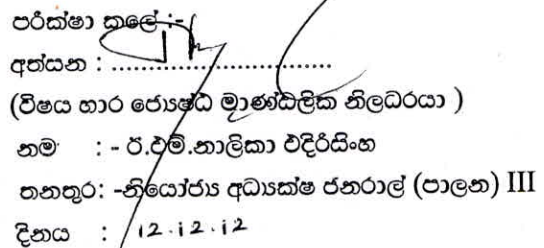 පරීක්ෂා කලේ :-
අත්සන : ..................................
(විෂය භාර ජ්‍යෙෂ්ඨ මාණ්ඩලික නිලධරයා )
නම : - ඊ.එම්.නාලිකා එදිරිසිංහ
තනතුර: -නියෝජ්‍ය අධ්‍යක්ෂ ජනරාල් (පාලන) III
දිනය : 12.12.12